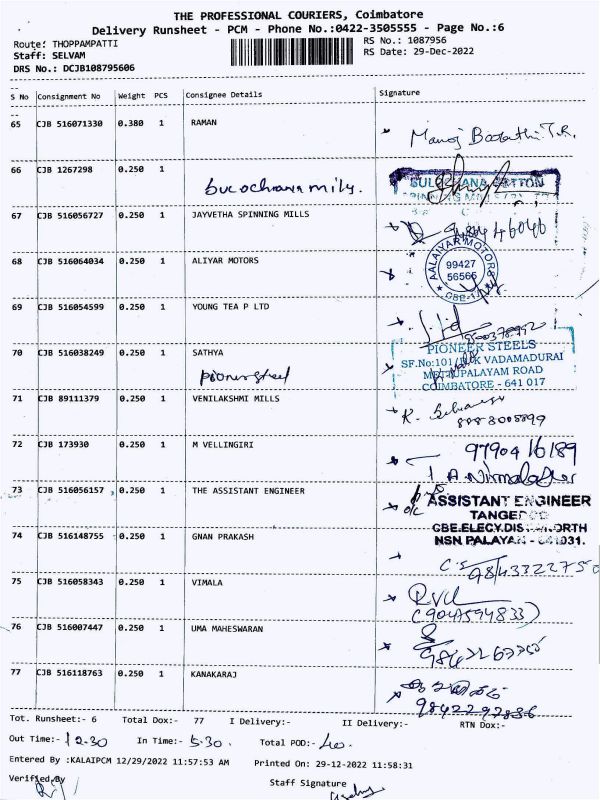 THE PROFESSIONAL COURIERS, Coimbatore
Delivery Runsheet - PCM - Phone No.:0422-3505555 - Page No.:6
Route: THOPPAMPATTI
RS No.: 1087956
Staff: SELVAM
RS Date: 29-Dec-2022
DRS No.: DCJB108795606
S No Consignment No Weight PCS Consignee Details Signature
65 CJB 516071330 0.380 1 RAMAN
Manoj Barathi T.R.
66 CJB 1267298 0.250 1
SULOCHANA COTTON
SPINNING MILLS
67 CJB 516056727 0.250 1 JAYVETHA SPINNING MILLS
68 CJB 516064034 0.250 1 ALIYAR MOTORS
AALAIYAR MOTORS
99427
56565
CBE-1
69 CJB 516054599 0.250 1 YOUNG TEA P LTD
70 CJB 516038249 0.250 1 SATHYA
pioneer steel
PIONEER STEELS
VADAMADURAI
METTUPALAYAM ROAD
COIMBATORE - 641 017
71 CJB 89111379 0.250 1 VENILAKSHMI MILLS
72 CJB 173930 0.250 1 M VELLINGIRI
97904 16189
73 CJB 516056157 0.250 1 THE ASSISTANT ENGINEER
ASSISTANT ENGINEER
NSN PALAYAM - 641031.
74 CJB 516148755 0.250 1 GNAN PRAKASH
9843322750
75 CJB 516058343 0.250 1 VIMALA
(9047594833)
76 CJB 516007447 0.250 1 UMA MAHESWARAN
77 CJB 516118763 0.250 1 KANAKARAJ
9842292836
Tot. Runsheet:- 6 Total Dox:- 77 I Delivery:- II Delivery:- RTN Dox:-
Out Time:- 12.30 In Time:- 5.30. Total POD:- 40.
Entered By :KALAIPCM 12/29/2022 11:57:53 AM Printed On: 29-12-2022 11:58:31
Verified By
Staff Signature